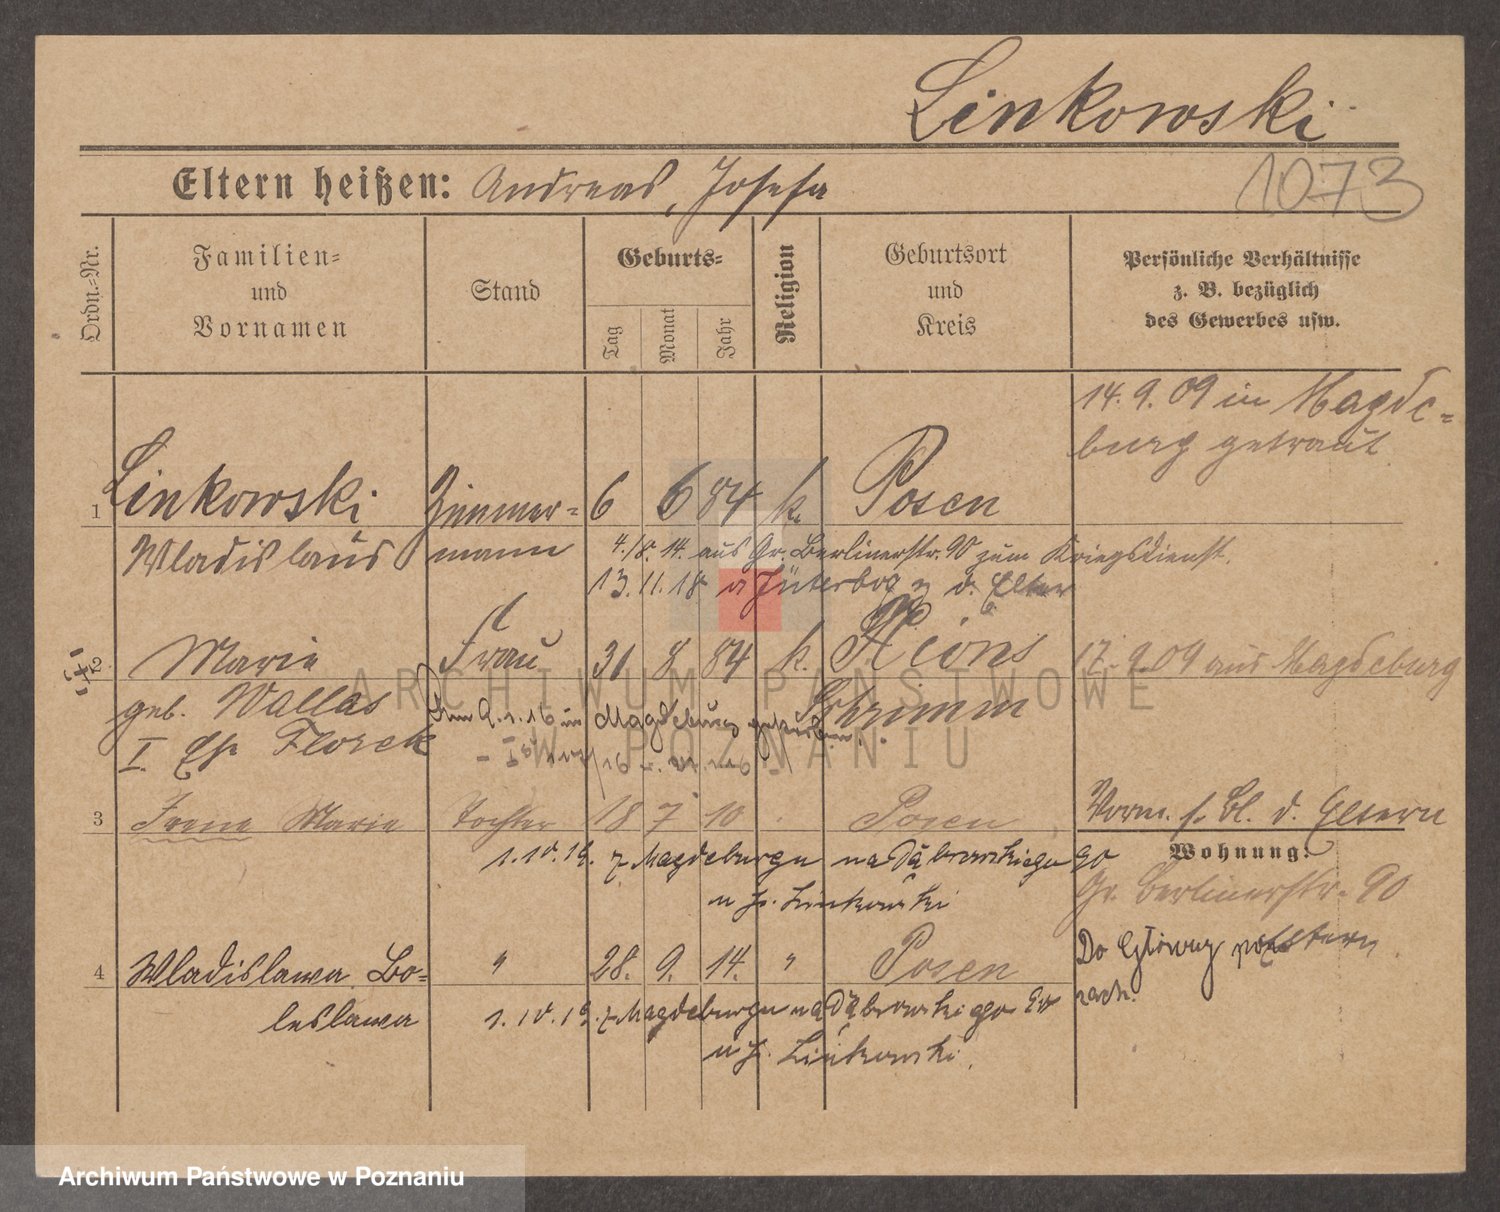 Linkowski
1073
Eltern heißen: Andreas, Josefa
Ordn.=Nr.
Familien=
und
Vornamen
Stand
Geburts=
Tag
Monat
Jahr
Religion
Geburtsort
und
Kreis
Persönliche Verhältnisse
z. B. bezüglich
des Gewerbes usw.
14. 9. 09 in Magde=
burg getraut
1 Linkowski Zimmer= 6 6 84 k. Posen
Wladislaus mann 4./8. 14. aus Gr. Berlinerstr. 90 zum Kriegsdienst.
13. 11. 18 a Jüterbog z d. Elter
2 Marie Frau 31 8 84 k. Xions 17. 9. 09 aus Magdeburg
geb. Wallas Schrimm
I. Eh. Florek
Am 9. 1. 16 in Magdeburg gestorben.
3 Irene Marie Tochter 18 7 10 Posen
Vorm. s. Bl. d. Eltern
1. 10. 19. z Magdeburga na Dąbrowskiego 90
u J. Linkowski
Wohnung:
Gr. Berlinerstr. 90
4 Wladislawa Bo= " 28. 9. 14. " Posen
leslawa 1. 10. 19. z Magdeburga na Dąbrowskiego 90
u J. Linkowski.
Do
ARCHIWUM PAŃSTWOWE
W POZNANIU
Archiwum Państwowe w Poznaniu